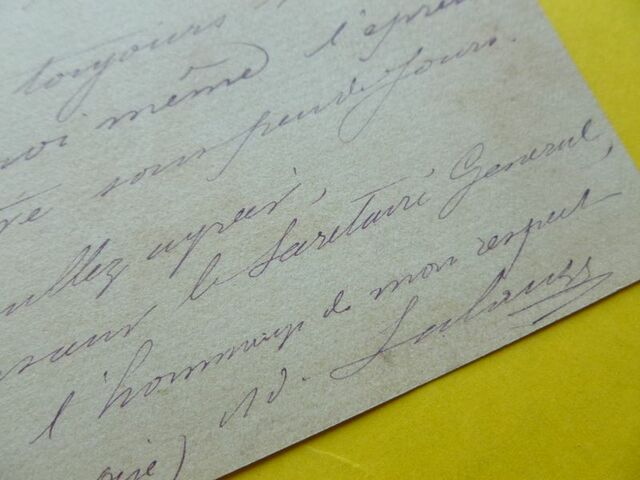 toujours
moi même l'épreu
sous peu de jours.
uillez agréer,
le Secrétaire Général,
l'hommage de mon respect
Ad. Lalauze